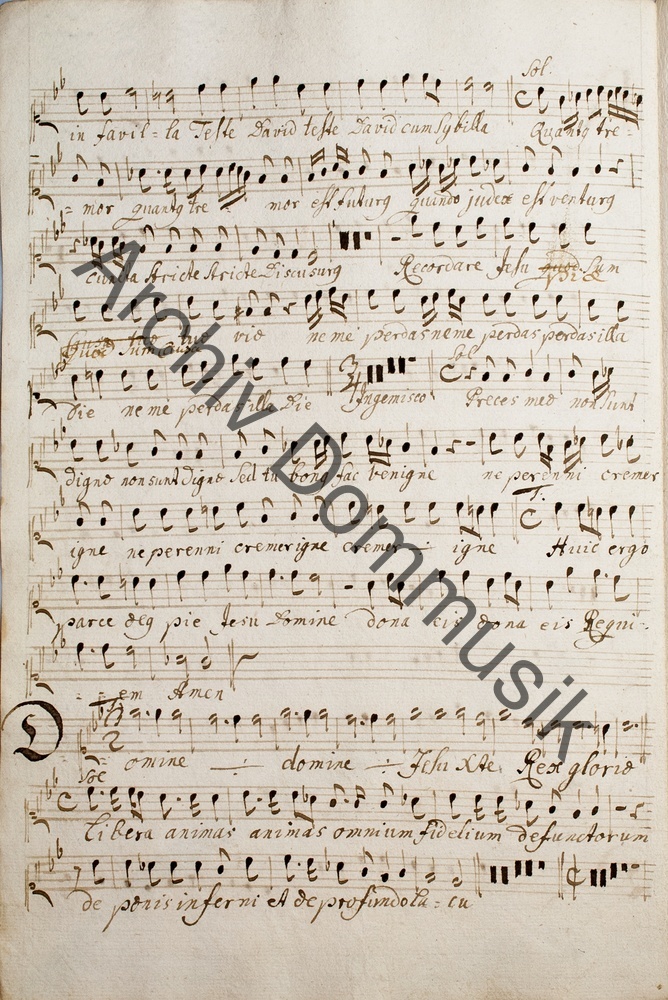 Sol.
in favil = la Teste David teste David cum Sybilla Quantq tre =
= mor quantq tre = mor est futurq quando judex est venturq
cuncta stricte stricte Discusurq Recordare Jesu pie Sum
Quod Sum viæ ne me perdas ne me perdas perdas illa
Die ne me perdas illa Die Ingemisco Preces meæ non sunt
dignæ non sunt dignæ Sed tu bonq fac benigne ne perenni cremer
T:
igne ne perenni cremer igne cremer ÷ igne Huic ergo
parce deq pie Jesu Domine dona eis dona eis Requi =
= = em Amen
T:
Domine ÷ domine ÷ Jesu Xte Rex gloriæ
Sol
libera animas animas omnium fidelium defunctorum
de pœnis inferni et de profundo la = cu
Archiv Dommusik